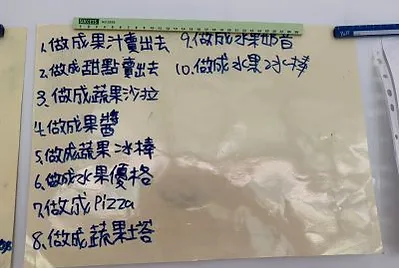 1.做成果汁賣出去
2.做成甜點賣出去
3.做成蔬果沙拉
4.做成果醬
5.做成蔬果冰棒
6.做成水果優格
7.做成Pizza
8.做成蔬果塔
9.做成水果奶昔
10.做成水果冰棒